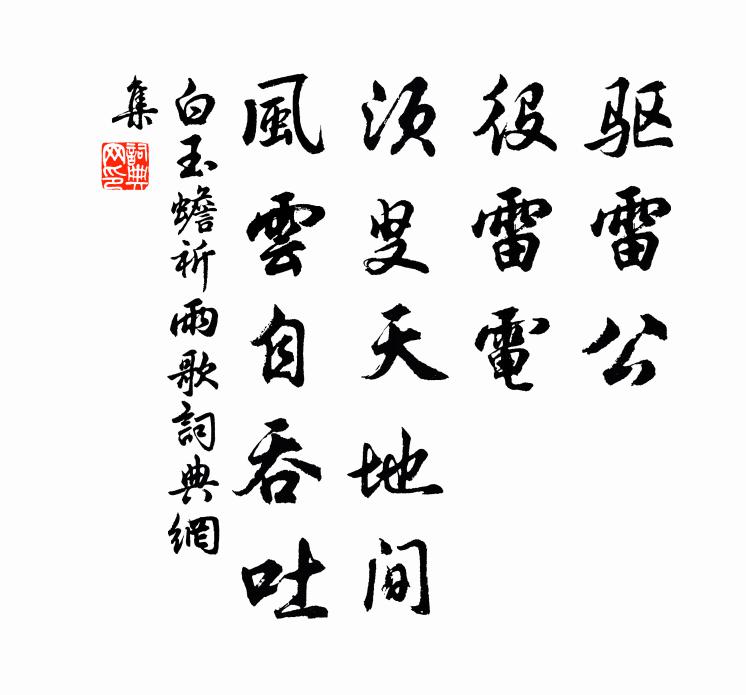 驱雷公
役雷電
须叟天地间
風雲自吞吐
白玉蟾祈雨歌詞典網
集
詞典
网印